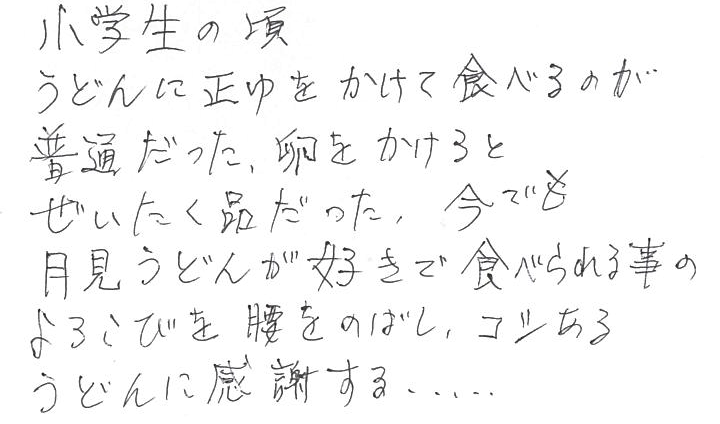 小学生の頃
うどんに正ゆをかけて食べるのが
普通だった、卵をかけると
ぜいたく品だった、今でも
月見うどんが好きで食べられる事の
よろこびを腰をのばし、コシある
うどんに感謝する.....